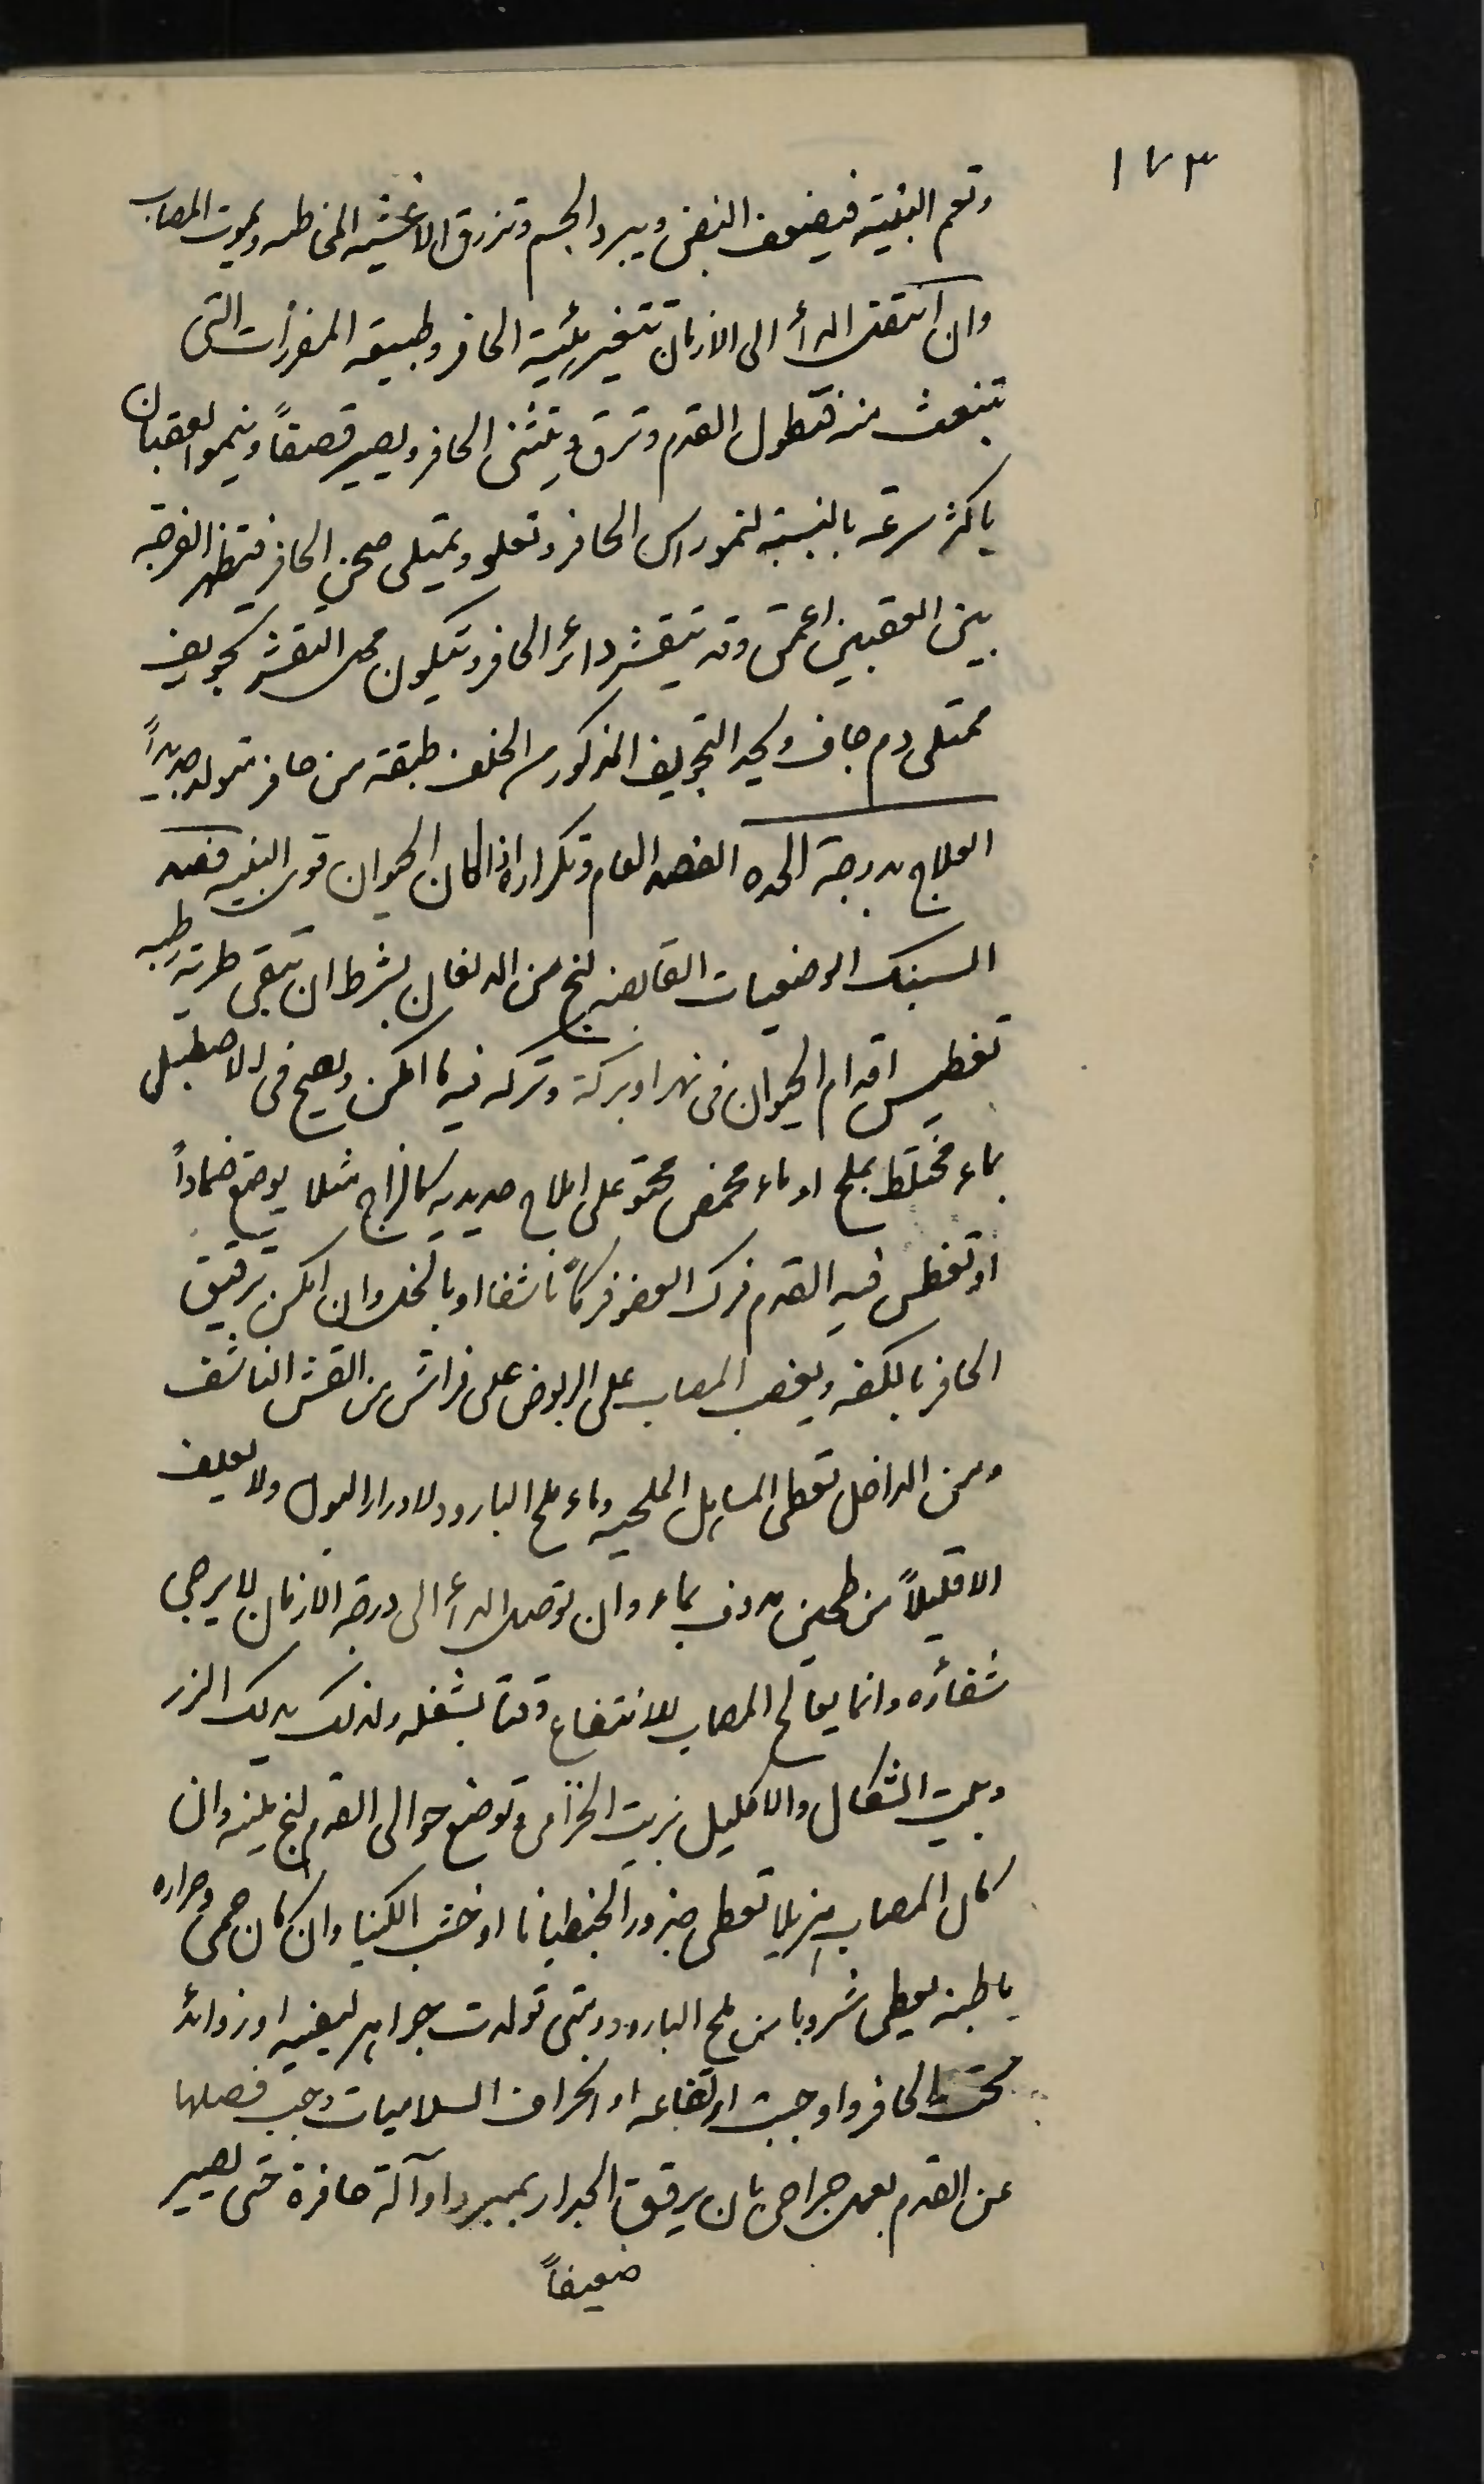 ١٧٣
وتعم البنيه فيضعف النبض ويبرد الجسم وتزرق الاغشيه المخاطيه ويموت المصاب
وان انتقل الدأ الى الازمان تتغير هئية الحافر وطبيعة المفرزات التى
تنبعث منه فتطول القدم وترق وينثنى الحافر ويصير قصفاً وينموا العقبان
باكثر سرعة بالنسبة لنمو راس الحافر وتعلو ويمتلى صحن الحافر فتظهر الفرجه
بين العقبين اعمق وقد يتقشر دائر الحافر ويتكون محل التقشر تجويف
ممتلى دم جاف ويحد التجويف المذكور من الخلف طبقة من حافر متولد جديداً
العلاج بدرجة الحده الفصد العام وتكراره اذا كان الحيوان قوى البنيه فصد
السنبك الوضعيات القابضه لبخ من الدلغان بشرط ان تبقى طريه رطبه
تغطيس اقدام الحيوان فى نهر او بركة وتركه فيه ما امكن ويصح فى الاصطبل
بماء مختلط بملح او ماء محمض محتو على املاح حديديه كالزاج مثلا يوضع ضماداً
او تغطس فيه القدم فرك العضو فركاً ناشفا او بالخل وان امكن ترقيق
الحافر بالكفه ويغصب المصاب على الربوض على فراش من القش الناشف
ومن الداخل تعطى المساهل الملحيه وماء ملح البارود لادرار البول ولا يعلف
الا قليلاً من طحين مدوف بماء وان توصل الدأ الى درجة الازمان لا يرجى
شفائه وانما يعالج المصاب للانتفاع وقتا بشغله ولذلك يدلك الزر
وبيت الشكال والاكليل بزيت الخزامى وتوضع حوالى القدم لبخ ملينه وان
كان المصاب هزيلا تعطى جذور الجنطيانا او خشب الكينا وان كان حمى وحراره
باطنه يعطى مشروبا من ملح البارود ومتى تولدت جواهر ليفيه او زوائد
تحت الحافر واوجبت ارتفاعه او انحراف السلاميات وجب فصلها
عن القدم بعمل جراحى بان يرقق الجدار بمبرد او آلة حافرة حتى يصير
ضعيفاً